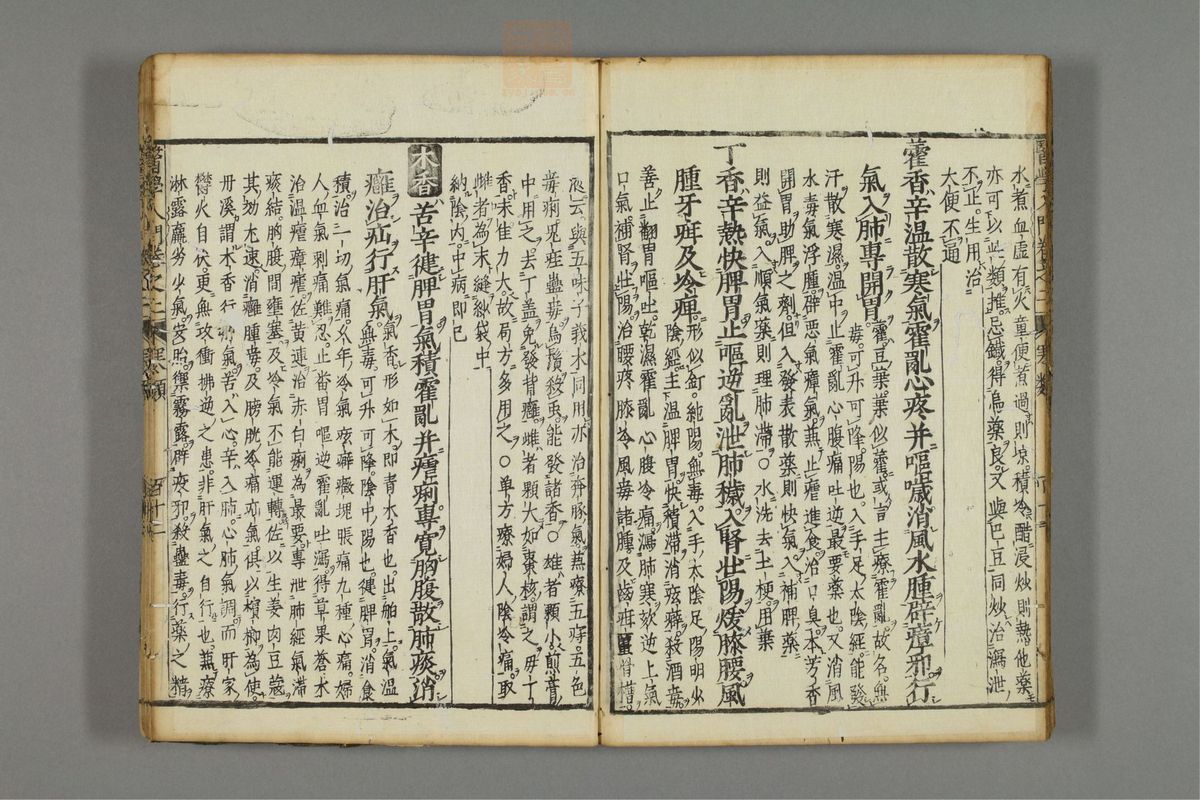 水煮血虛有火童便煮過則凉積冷醋浸炒則熱他藥
亦可以此類推忌鐵得烏藥良又與巴豆同炒治漏泄
不止生用治
大便不通
藿香辛温散寒氣霍亂心疼并嘔噦消風水腫辟瘴邪行
氣入肺專開胃藿豆葉葉似藿或言主療霍亂故名無
毒可升可降陽也入手足太陰經能發
汗散寒濕温中止霍亂心腹痛吐逆最要藥也又消風
水毒氣浮腫辟惡氣瘴氣兼止瘧進食治口臭本芳香
開胃助脾之劑但入發表散藥則快氣入補脾藥
則益氣入順氣藥則理肺滯○水洗去土梗用葉
丁香辛熱快脾胃止嘔逆亂泄肺穢入腎壯陽煖膝腰風
腫牙疳及冷痺形似釘純陽無毒入手太陰足陽明少
陰經主温脾胃快積滯消痃癖殺酒毒
善止翻胃嘔吐乾濕霍亂心腹冷痛漏肺寒欬逆上氣
口氣補腎壯陽治腰疼膝冷風毒諸腫及齒疳䘌骨槽
液云與五味子莪朮同用亦治奔豚氣兼療五痔五色
毒痢鬼疰蟲毒烏鬚殺虫能發諸香○雄者顆小煎膏
中用之去丁盖免發背癰雌者顆大如棗核謂之母丁
香末佳力大故局方多用之○单方療婦人陰冷痛取
雌者為末縫紗袋中
納陰内中病即已
木香苦辛健脾胃氣積霍亂并瘧痢專寬胸腹散肺痰消
癰治疝行肝氣氣香形如木即青木香也出舶上氣温
無毒可升可降陰中陽也健脾胃消食
積治一切氣痛久年冷氣痃癖癥塊脹痛九種心痛婦
人血氣刺痛難忍止畨胃嘔逆霍亂吐瀉得草果蒼朮
治温瘧瘴瘧佐黄連治赤白痢為最要專泄肺經氣滯
痰結胸腹間壅塞及冷氣不能運轉佐以生姜肉豆蔻
其効尤速消癰腫毒及膀胱冷痛疝氣俱以檳榔為使
丹溪謂木香行肝氣苦入心辛入肺心肺氣調而肝家
鬱火自伏更無攻衝拂逆之患非肝氣之自行也兼療
淋露羸劣少氣安胎禦霧露辟疫邪殺蠱毒行藥之精